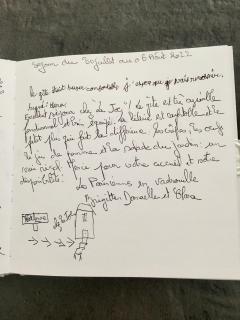 Séjour du 30 juillet au 6 Août 2022
Le gîte était super confortable j'espère que je vais revenir,
Excellent séjour chez "Le Jog"! Le gîte est très agréable
fonctionnel et bien équipé. La literie est confortable et le
petit plus qui fait la différence : les œufs
le jus de pomme et la salade du jardin : un
vrai régal. Merci pour votre accueil et votre
disponibilité.
Les Parisiens en vadrouille
Brigitte, Danielle et Clara